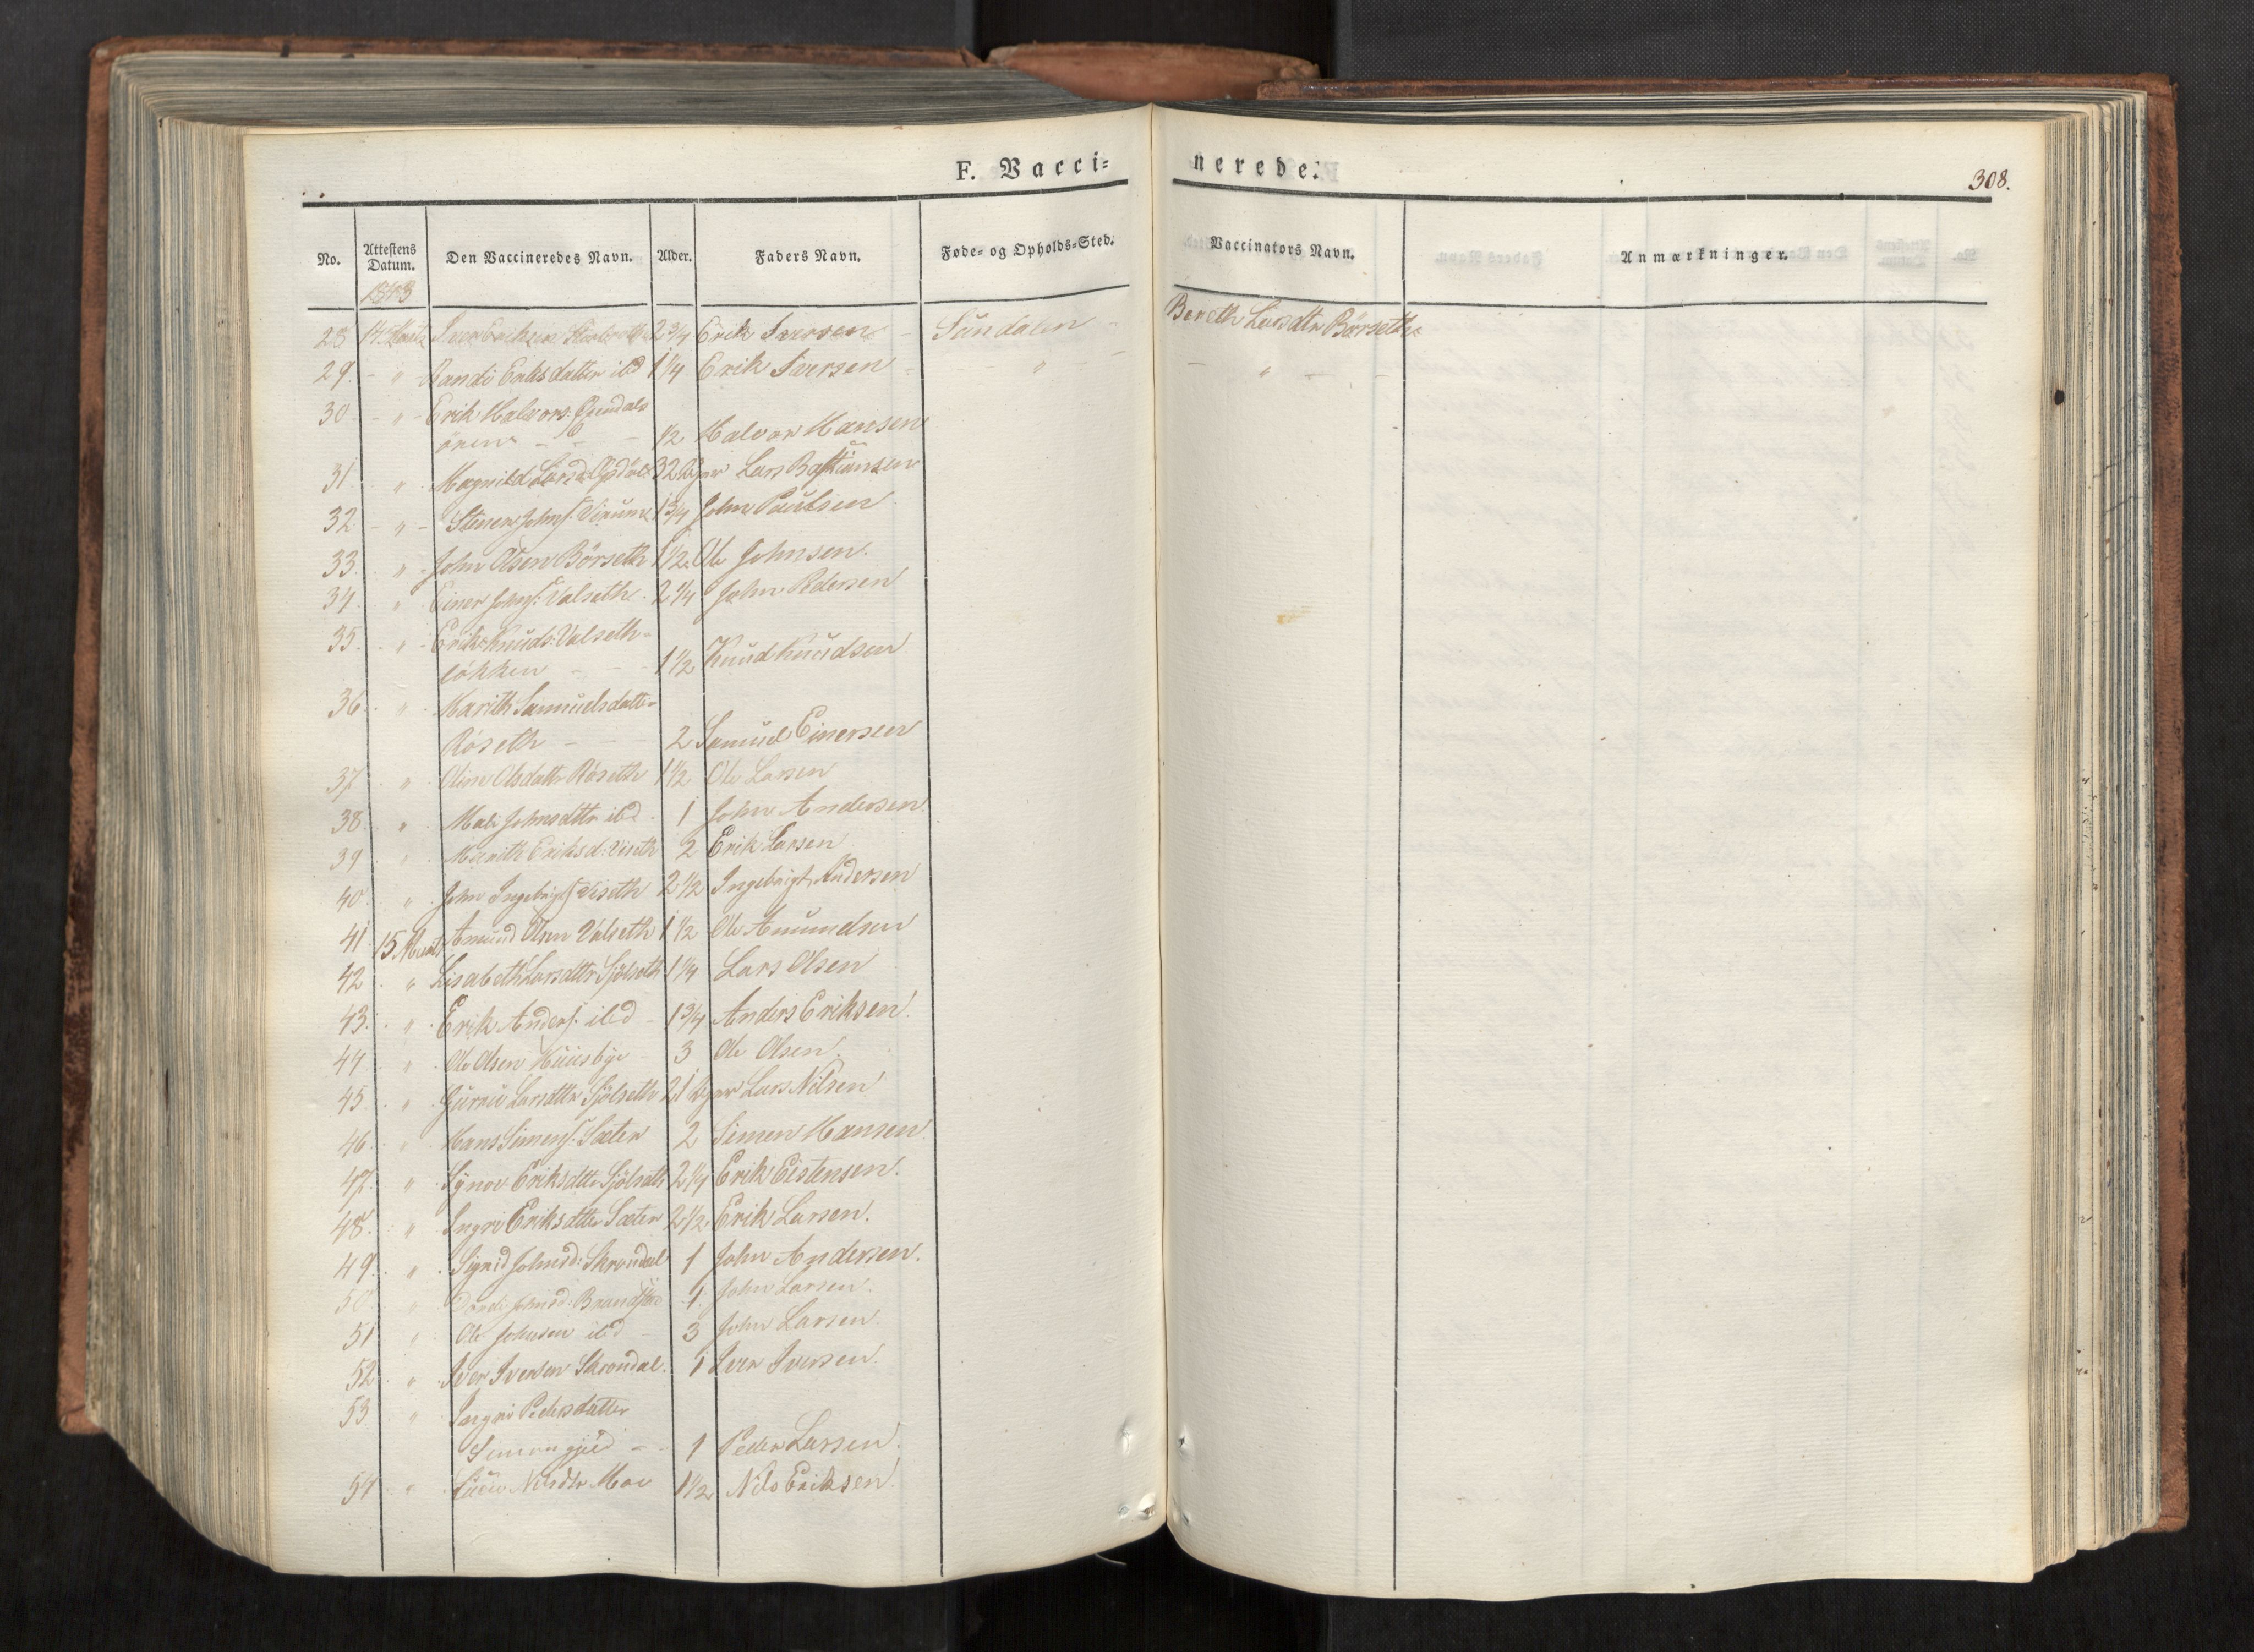 F. Vacci=
nerede.
308.
No. Attestens Datum. Den Vaccineredes Navn. Alder. Faders Navn. Føde- og Opholds=Sted. Vaccinators Navn. Anmærkninger.
1843
28 14 Iver Eriksen 2 3/4 Erik Iversen - Sundalen Bereth Larsdtr Börseth
29. - " Randi Eriksdatter ibd 1 1/4 Erik Iversen " "
30 - " - Erik Halvors:
ören - - 1/2 Halvor Hansen
31 " Magnild Larsd: 32 Lars Bastiansen
32 - " - Stinen Johns: Virum 1 3/4 John Paulsen
33. " John Olsen Börseth 1 1/2 Ole Johnsen.
34. " Einer Johns: Valseth 2 1/4 John Pedersen
35. " Erik Knuds: Valseth=
lökken - 1 1/2 Knud Knudsen
36. " Marith Samuelsdatter
Röseth - 2 Samuel Einersen
37. " Olsdattr Röseth 1 1/2 Ole Larsen
38. " Mali Johnsdttr ibd 1 John Andersen
39 " Marith Eriksd: Viseth 2 Erik Larsen
40. " John Ingebrigts: Viseth 2 1/2 Ingebrigt Andersen
41 15 Amund Olsen Valseth 1 1/2 Ole Amundsen
42 " Lisabeth Larsdttr Sjölseth 1 1/4 Lars Olsen
43. " Erik Anders: ibd - 1 3/4 Anders Eriksen.
44 " Ole Olsen Huusbye 3 Ole Olsen.
45 " Larsdttr Sjölseth 21 Lars Nilsen
46 " Hans Simens: Sæter 2 Simen Hansen
47. " Synov Eriksdtter Sjölseth 2 1/4 Erik Eistensen.
48. " Ingri Eriksdtter Sæter 2 1/2 Erik Larsen.
49. " Sigrid Johnsd: Skrondal 1 John Andersen.
50 " Johnsd: 1 John Larsen.
51 " Ole Johnsen ibd - 3 John Larsen.
52 " Iver Iversen Skrondal. 1 Iver Iversen.
53 " Ingri Pedersdatter
- 1 Peder Larsen.
54 " Nilsdtr Moe 1 1/2 Nils Eriksen